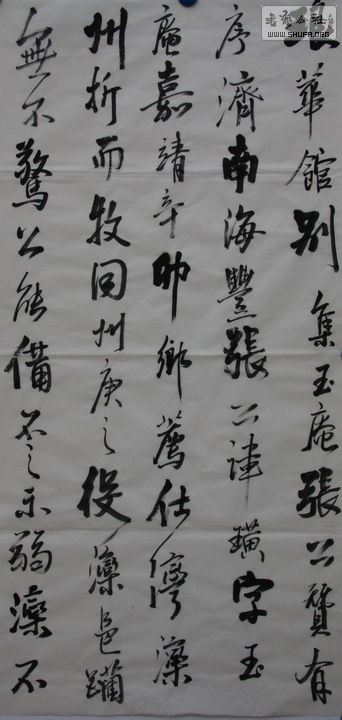 书艺公社
WWW.SHUFA.ORG
華館別集玉庵張公贊有
序濟南海豐張公諱璜字玉
庵嘉靖辛卯鄉薦仕灤
州折而牧回州庚之役灤邑躪
無不驚公能備之灤不